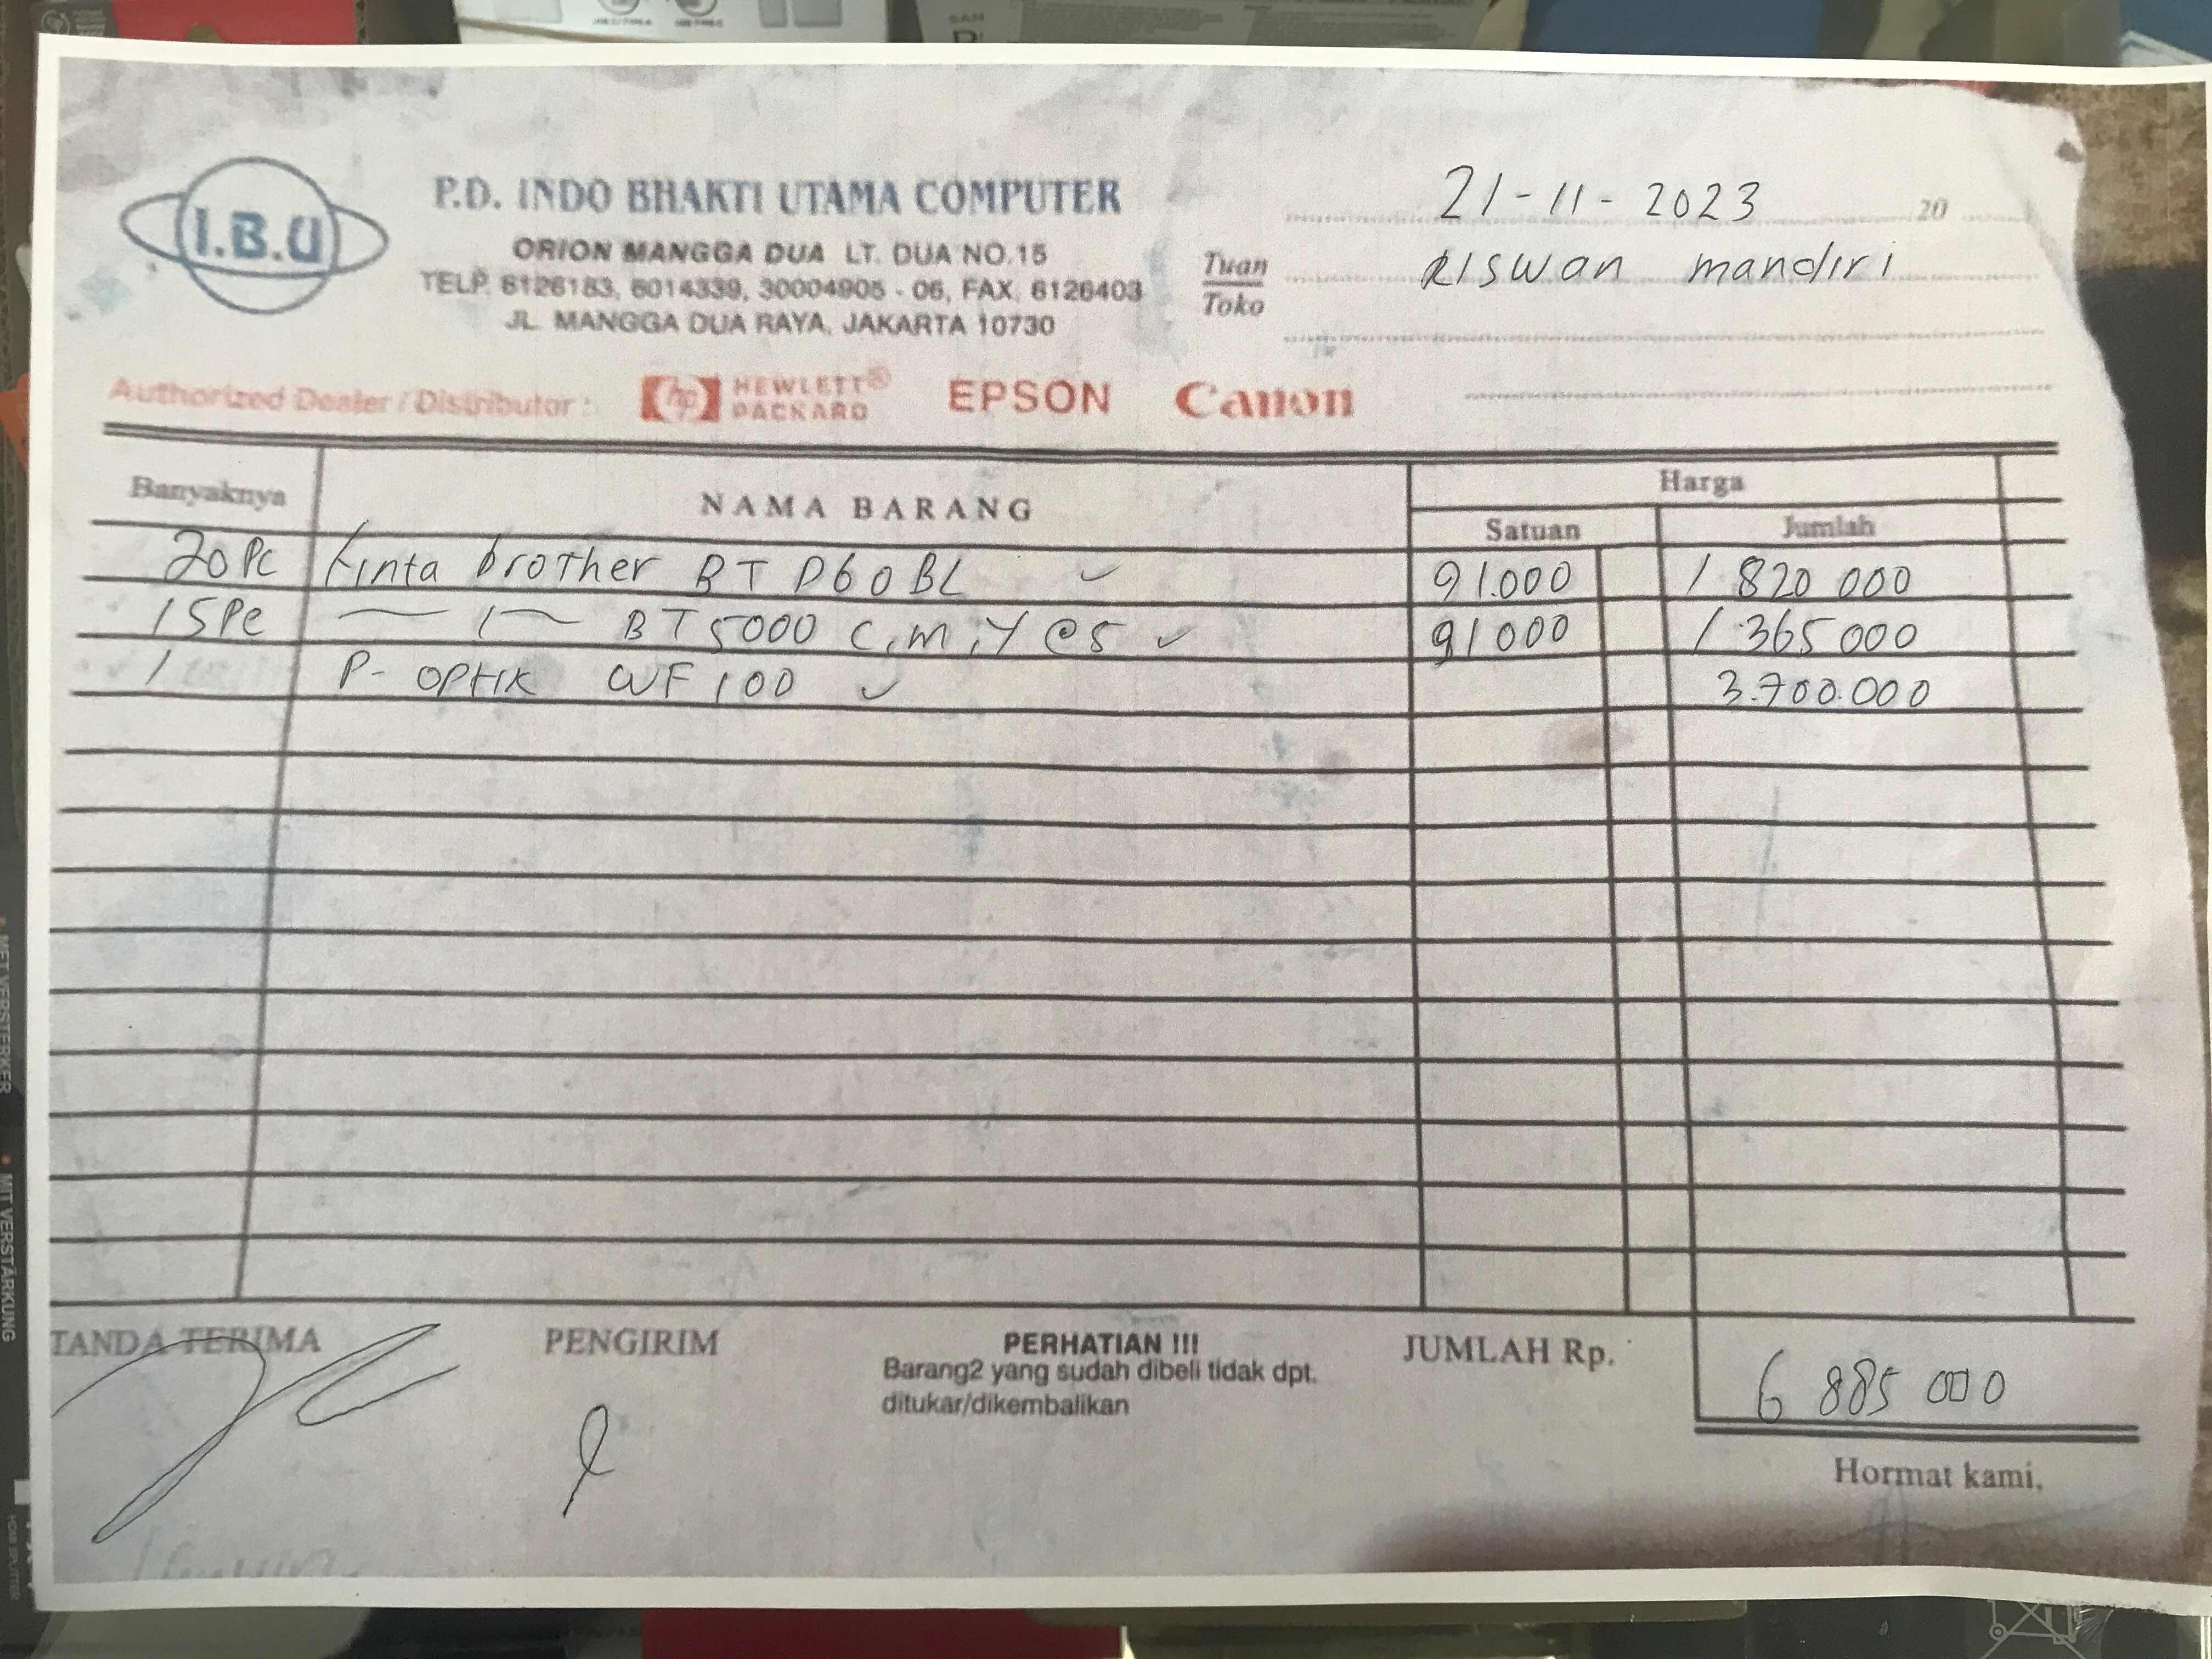 I.B.U
P.D. INDO BHAKTI UTAMA COMPUTER
ORION MANGGA DUA LT. DUA NO.15
TELP. 6126183, 6014339, 30004905 - 06, FAX. 6126403
JL. MANGGA DUA RAYA, JAKARTA 10730
21-11-2023 20
Tuan Riswan mandiri
Toko
Authorized Dealer / Distributor : hp HEWLETT® PACKARD EPSON Canon
Banyaknya NAMA BARANG Harga
Satuan Jumlah
20 Pc tinta brother BT D60BL 91.000 1 820 000
15 Pc BT 5000 C,M,Y @5 91 000 1 365 000
1 P- optik WF 100 3.700.000
TANDA TERIMA PENGIRIM PERHATIAN !!! JUMLAH Rp. 6 885 000
Barang2 yang sudah dibeli tidak dpt.
ditukar/dikembalikan
Hormat kami,
MIT VERSTÄRKUNG